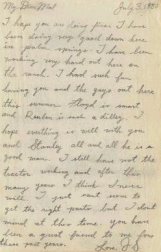 My Dear Mal July 3, 19
I hope you are doing fine. I have
been doing very good down here
in palm springs. I have been
working very hard out here on
the ranch. I had such fun
having you and the guys out here
this summer. Floyd is smart
and Reuben is such a dilley. I
hope everything is well with you
and Stanley all and all he is a
good man. I still have not the
tractor working and after this
many years I think I never
will. I just cant seem to
get the right parts but I dont
mind at this time. you have
been a great friend to me for
these past years. Love,